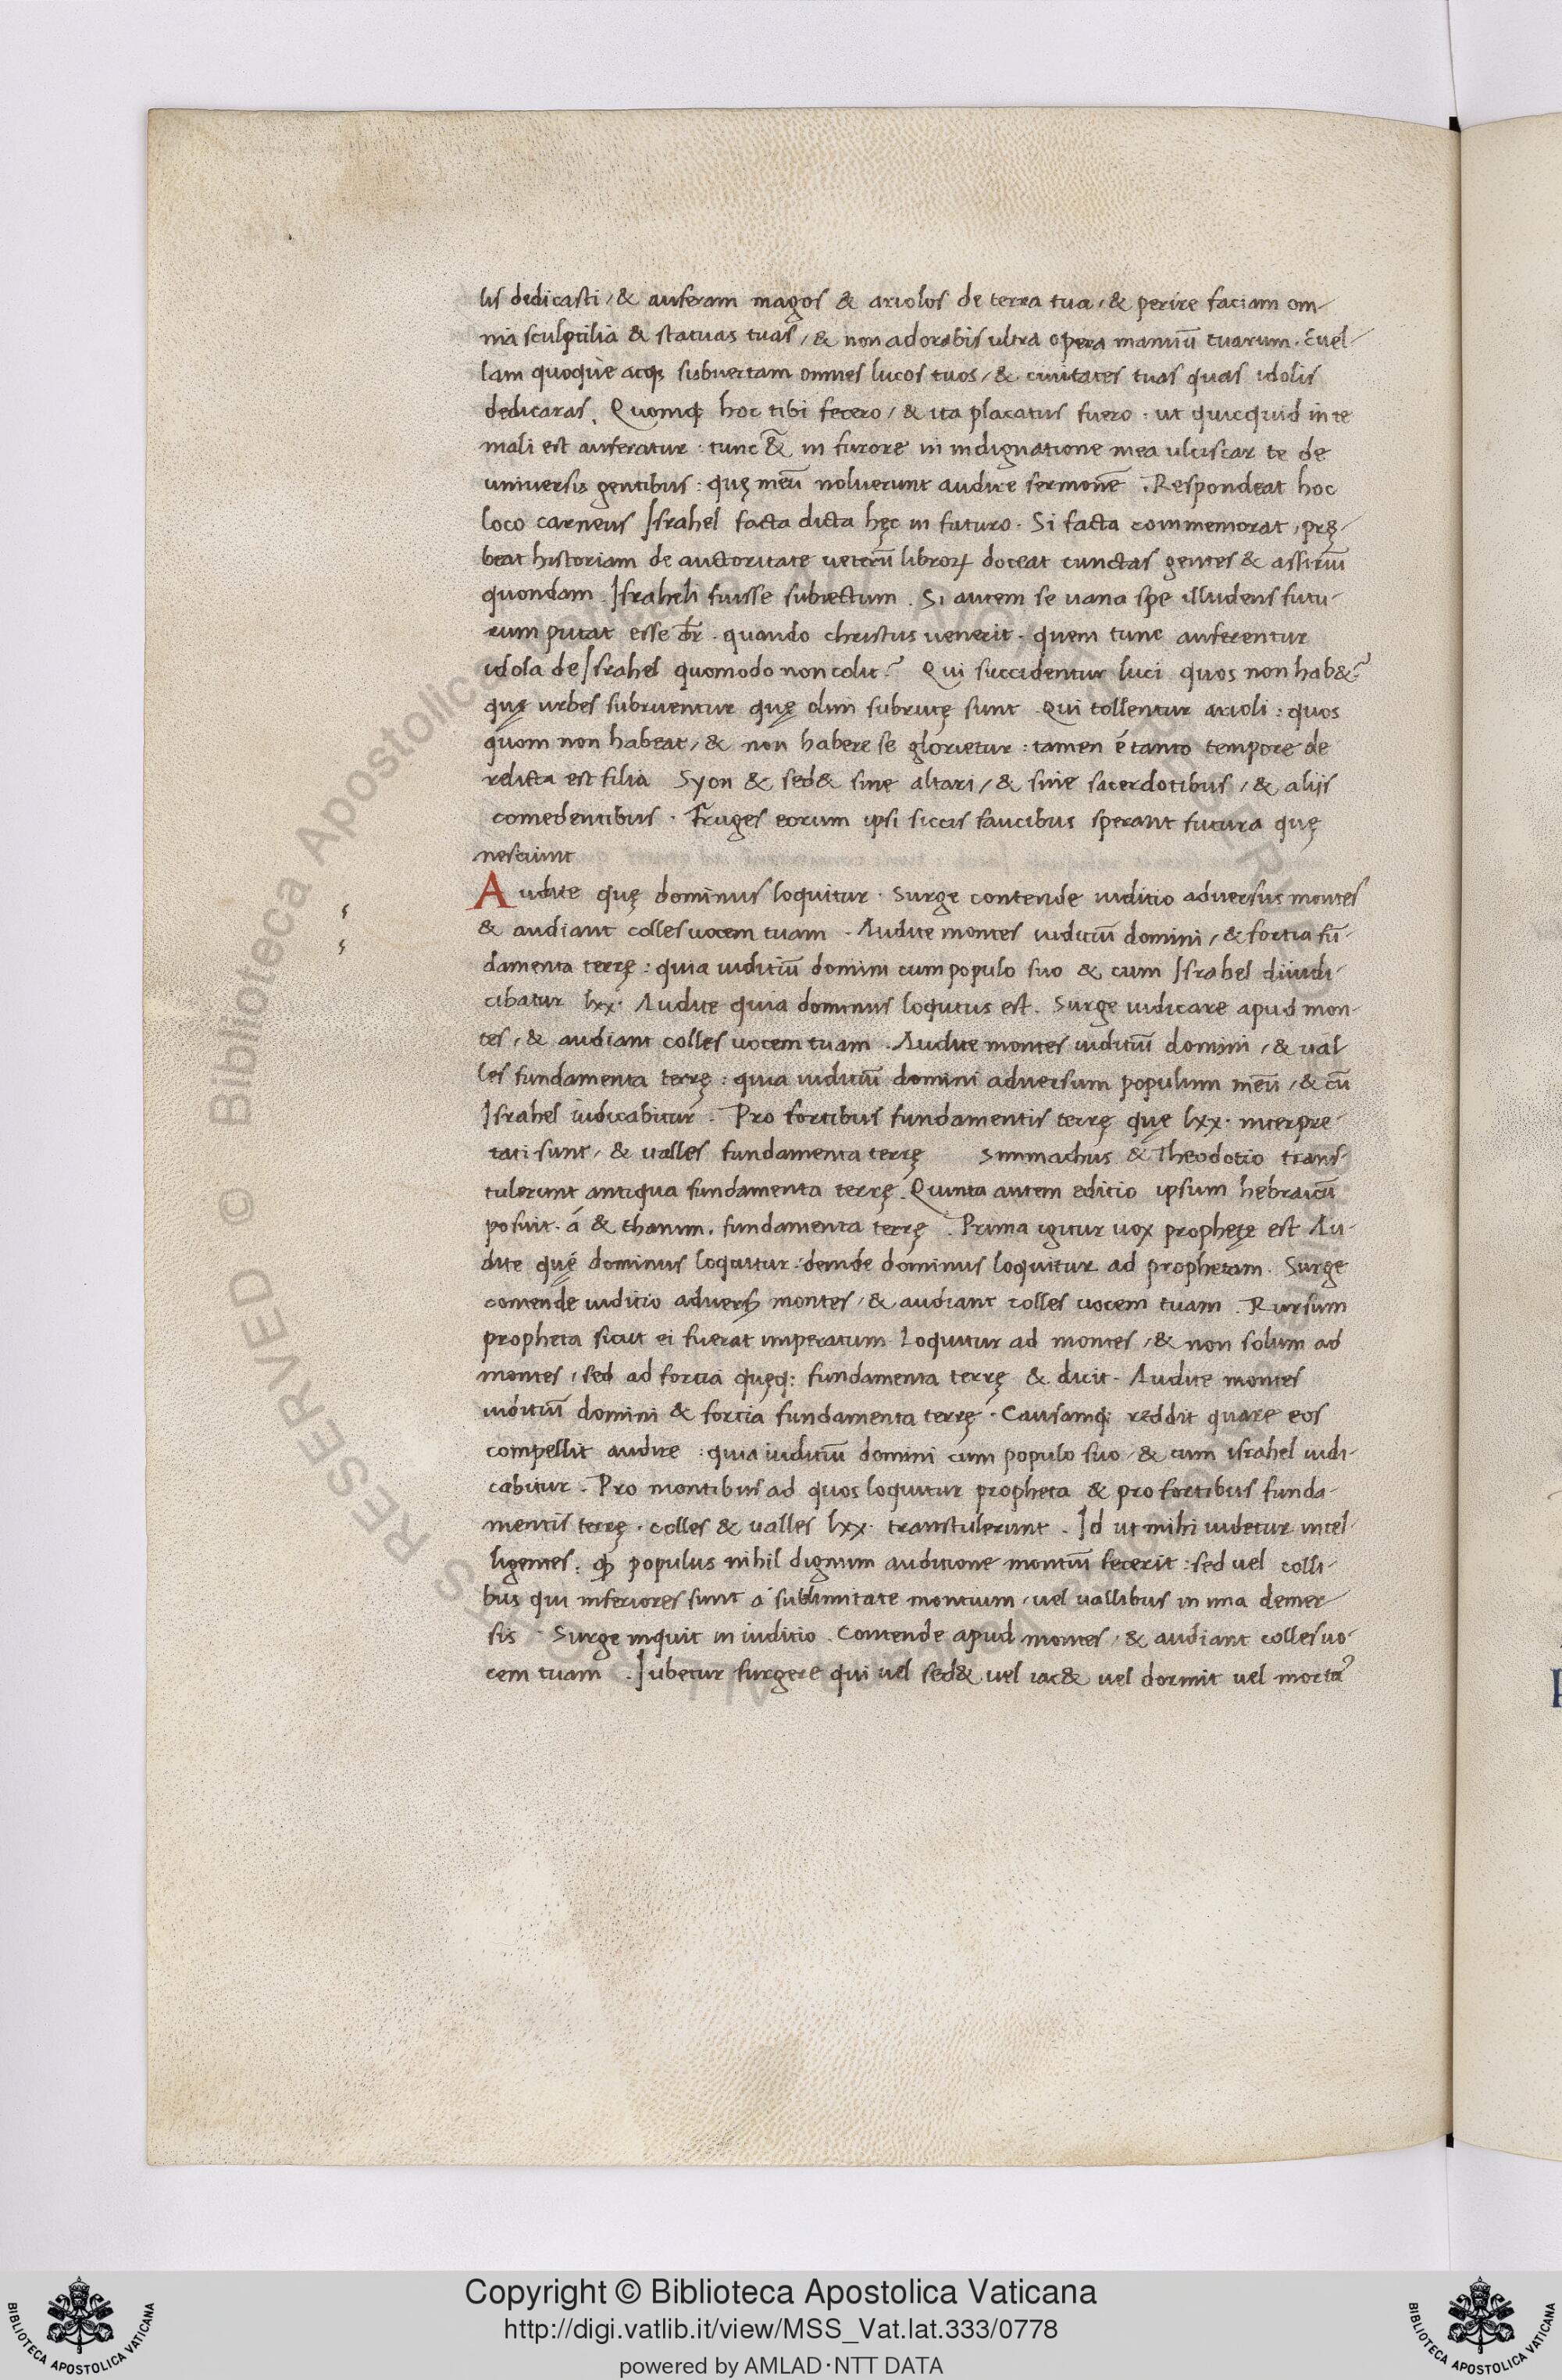 lis dedicasti, & auferam magos & ariolos de terra tua, & perire faciam om-
nia sculptilia & statuas tuas, & non adorabis ultra opera manuū tuarum. Euel-
lam quoque atqꝫ subuertam omnes lucos tuos, & ciuitates tuas quas idolis
dedicaras. Quomqꝫ hoc tibi fecero, & ita placatus fuero. ut quicquid in te
mali est auferatur: tunc & in furore in indignatione mea ulciscar te de
uniuersis gentibus: quę meū noluerunt audire sermonē. Respondeat hoc
loco carneus Israhel facta dicta hęc in futuro. Si facta commemorat, prę-
beat historiam de auctoritate ueterū libroꝝ doceat cunctas gentes & assiriū
quondam Israheli fuisse subiectum. Si autem se uana spe illudens futu-
rum putat esse dr̄. quando christus uenerit. quem tunc auferentur
idola de Israhel quomodo non colit? Qui succidentur luci quos non hab&?
quę urbes subruentur quę olim subrutę sunt. Qui tollentur arioli: quos
quom non habeat, & non habere se glorietur: tamen é tanto tempore de
relicta est filia Syon & sed& sine altari, & sine sacerdotibus, & aliis
comedentibus. Fruges eorum ipsi siccis faucibus sperant futura quę
nesciunt
Audite quę dominus loquitur. Surge contende iuditio aduersus montes
& audiant colles uocem tuam. Audite montes iuditiū domini, & fortia fū-
damenta terrę: quia iuditiū domini cum populo suo & cum Israhel diiudi-
cibatur lxx. Audite quia dominus loqutus est. Surge iudicare apud mon-
tes, & audiant colles uocem tuam. Audite montes iuditiū domini, & ual
les fundamenta terrę: quia iuditiū domini aduersum populum meū, & cū
Israhel iudicabitur. Pro fortibus fundamentis terrę quę lxx. interpre-
tati sunt, & ualles fundamenta terrę Simmachus & Theodotio trans-
tulerunt antiqua fundamenta terrę. Quinta autem editio ipsum hebraicū
posuit. á & thanim. fundamenta terrę. Prima igitur uox prophetę est Au-
dite quę dominus loquitur. deinde dominus loquitur ad prophetam. Surge
contende iuditio aduersꝫ montes, & audiant colles uocem tuam. Rursum
propheta sicut ei fuerat imperatum Loquitur ad montes, & non solum ad
montes, sed ad fortia quęqꝫ: fundamenta terrę & dicit. Audite montes
iuditiū domini & fortia fundamenta terrę. Causamqꝫ reddit quare eos
compellit audire: quia iuditiū domini cum populo suo, & cum israhel iudi-
cabitur. Pro montibus ad quos loquitur propheta & pro fortibus funda-
mentis terrę. colles & ualles lxx. transtulerunt. Id ut mihi uidetur intel-
ligentes: ꝙ populus nihil dignum auditione montiū fecerit: sed uel colli-
bus qui inferiores sunt á sublimitate montium, uel uallibus in ima demer-
sis Surge inquit in iuditio. Contende apud montes, & audiant colles uo-
cem tuam. Iubetur surgere qui uel sed& uel iac& uel dormit uel
Copyright © Biblioteca Apostolica Vaticana
http://digi.vatlib.it/view/MSS_Vat.lat.333/0778
powered by AMLAD·NTT DATA
BIBLIOTECA APOSTOLICA VATICANA
BIBLIOTECA APOSTOLICA VATICANA